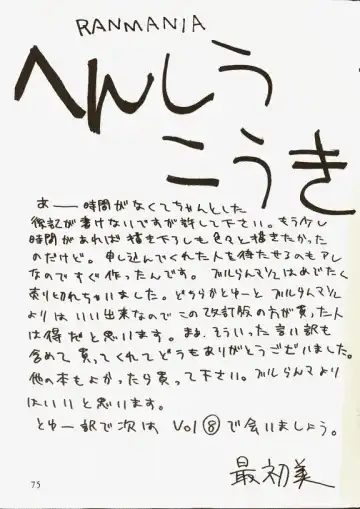 RANMANIA
へんしう
こうき
あー時間がなくてちゃんとした
後記が書けないですが許して下さい。もう少し
時間があれば描き下ろしも色々と描きたかった
のだけど。申し込んでくれた人を待たせるのもアレ
なのですぐ作ったんです。ブルらんマ1/2はめでたく
売り切れちゃいました。どちらかとゆーとブルらんマ1/2
よりはいい出来なのでこの改訂版の方が買った人
は得だと思います。まぁ、そういった言い訳も
含めて買ってくれてどうもありがとうございました。
他の本もよかったら買って下さい。ブルらんマより
はいいと思います。
とゆー訳で次は Vol⑧で会いましょう。
最初美
75